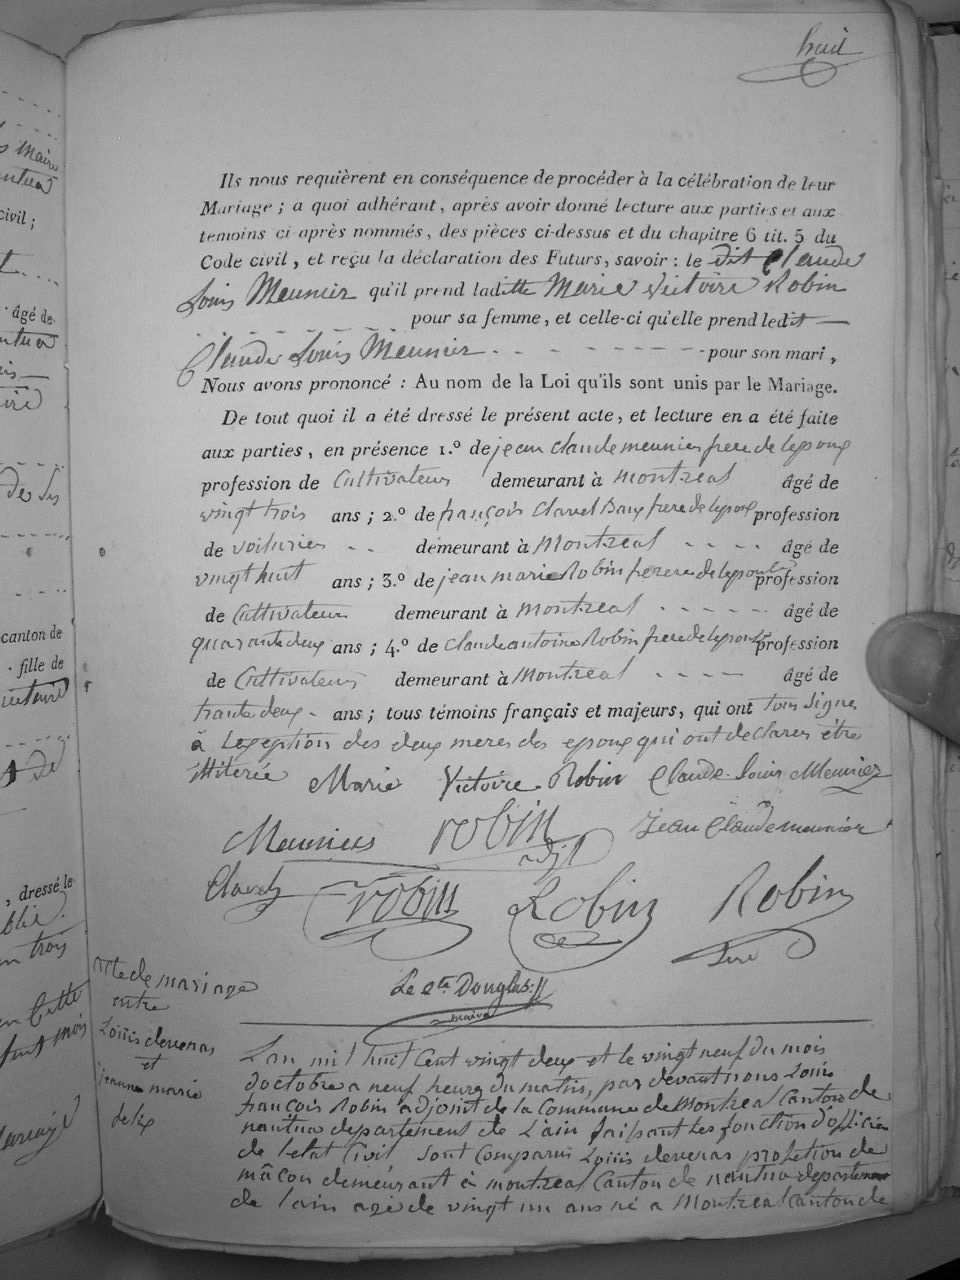 huit
Ils nous requièrent en conséquence de procéder à la célébration de leur
Mariage ; a quoi adhérant, après avoir donné lecture aux parties et aux
temoins ci après nommés, des pièces ci-dessus et du chapitre 6 tit. 5 du
Code civil, et reçu la déclaration des Futurs, savoir : le dit Claude
Louis Meunier qu'il prend laditte Marie Victoire Robin
pour sa femme, et celle-ci qu'elle prend ledit
Claude Louis Meunier pour son mari,
Nous avons prononcé : Au nom de la Loi qu'ils sont unis par le Mariage.
De tout quoi il a été dressé le présent acte, et lecture en a été faite
aux parties, en présence 1.° de jean Claude meunier frere de lepoux
profession de Cultivateur demeurant à Montreal âgé de
vingt trois ans ; 2.° de françois Clavel Baux frere de lepoux profession
de voiturier demeurant à Montreal âgé de
vingt huit ans ; 3.° de jean marie Robin frerere de lepouse profession
de Cultivateur demeurant à Montreal âgé de
quarante deux ans ; 4.° de Claude antoine Robin frere de lepouse profession
de Cultivateur demeurant à Montreal âgé de
trante deux ans ; tous témoins français et majeurs, qui ont tous signé
à lexception des deux meres des epoux qui ont declarer être
illiterée Marie Victoire Robin Claude Louis Meunier
Meunier robin adjt Jean Claude meunier
Clavel robin Robin Robin
Pere
Le cte. Douglas
maire
acte de mariage
entre
Louis deveras
et
jeanne marie
delix
Lan mil huit Cent vingt deux et le vingt neuf du mois
doctobre a neuf heure du matin, par devant nous Louis
françois Robin adjoint de la Commune de Montreal Canton de
nantua departement de Lain faisant les fonction d'officier
de letat Civil sont Comparu Louis deveras profetion de
mâcon demeurant à montreal Canton de nantua departement
de lain agé de vingt un ans né a Montreal Canton de